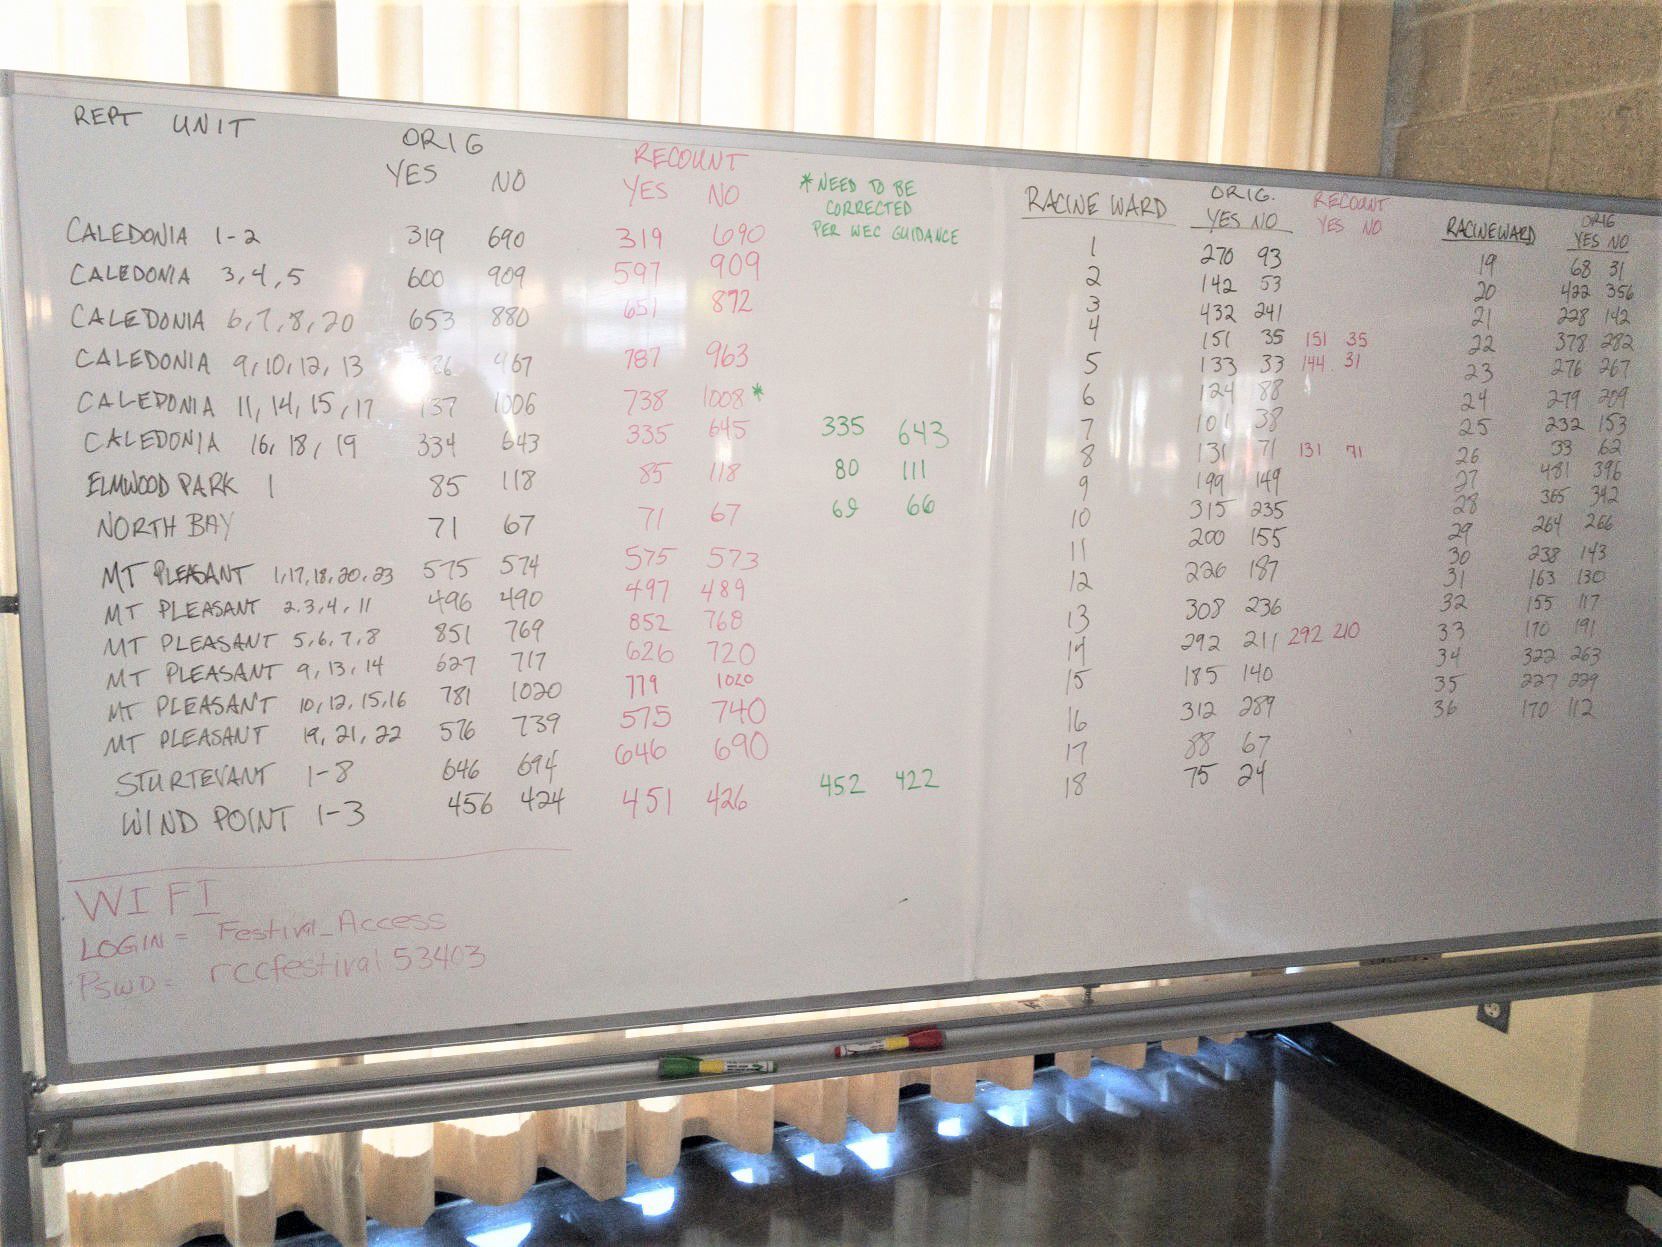 REPT UNIT ORIG RECOUNT
YES NO YES NO *NEED TO BE
CORRECTED
PER WEC GUIDANCE
CALEDONIA 1-2 319 690 319 690
CALEDONIA 3,4,5 600 909 597 909
CALEDONIA 6,7,8,20 653 880 651 872
CALEDONIA 9,10,12,13 967 787 963
CALEDONIA 11,14,15,17 1006 738 1008*
CALEDONIA 16,18,19 334 643 335 645 335 643
ELMWOOD PARK 1 85 118 85 118 80 111
NORTH BAY 71 67 71 67 69 66
MT PLEASANT 1,17,18,20,23 575 574 575 573
MT PLEASANT 2,3,4,11 496 490 497 489
MT PLEASANT 5,6,7,8 851 769 852 768
MT PLEASANT 9,13,14 627 717 626 720
MT PLEASANT 10,12,15,16 781 1020 779 1020
MT PLEASANT 19,21,22 576 739 575 740
STURTEVANT 1-8 646 694 646 690
WIND POINT 1-3 456 424 451 426 452 422
WIFI
LOGIN = Festival_Access
PSWD = rccfestival53403
RACINE WARD ORIG. RECOUNT
YES NO YES NO
1 270 93
2 142 53
3 432 241
4 151 35 151 35
5 133 33 144 31
6 124 88
7 101 38
8 131 71 131 71
9 199 149
10 315 235
11 200 155
12 226 187
13 308 236
14 292 211 292 210
15 185 140
16 312 289
17 88 67
18 75 24
RACINE WARD ORIG
YES NO
19 68 31
20 422 356
21 228 142
22 378 282
23 276 267
24 279 209
25 232 153
26 33 62
27 481 396
28 365 342
29 264 266
30 238 143
31 163 130
32 155 117
33 170 191
34 322 263
35 227 229
36 170 112